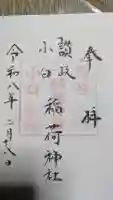 奉拝
讃岐
小白稲荷神社
令和八年二月十八日